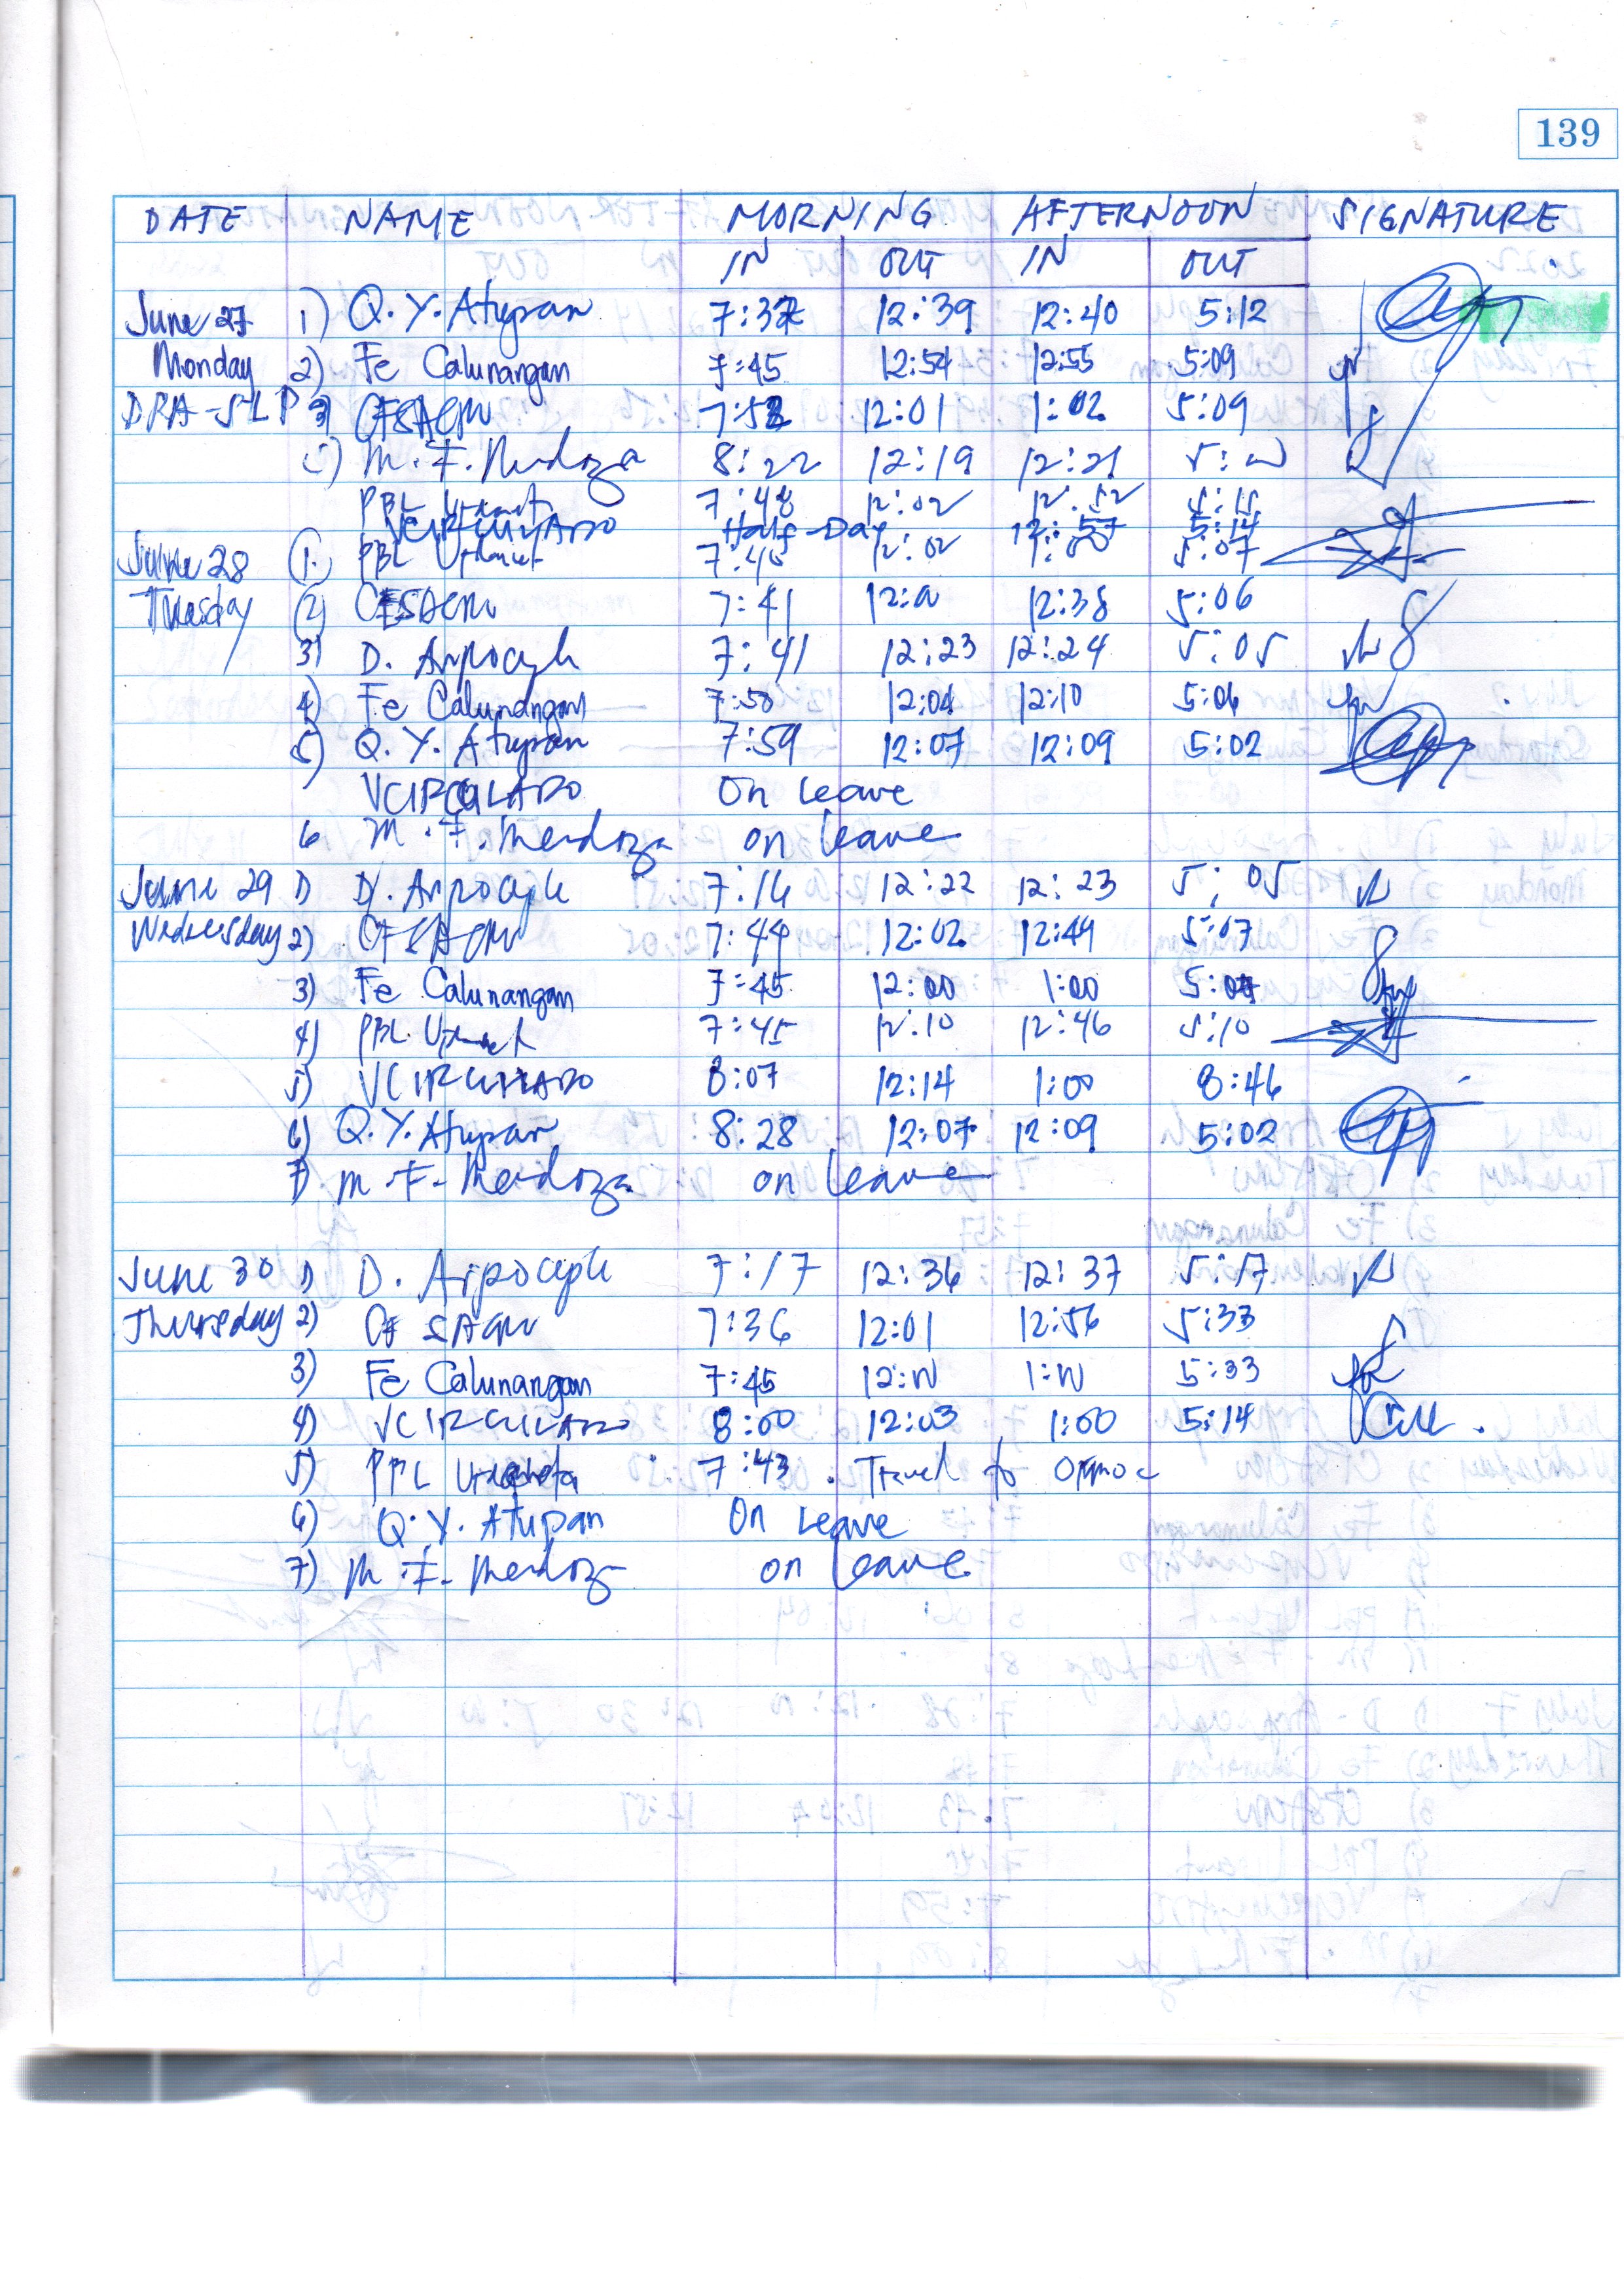 139
DATE NAME MORNING AFTERNOON SIGNATURE
IN OUT IN OUT
June 27 1) Q.Y. Atupan 7:37 12:39 12:40 5:12
Monday 2) Fe Calunangan 7:45 12:54 12:55 5:09
DRA-SLP 3) 7:52 12:01 1:02 5:09
M.F. Mendoza 8:22 12:19 12:21
PBL 7:48 12:02 12:52 5:15
VCIRCULADO Half-Day 12:57 5:14
June 28 1. PBL 7:45 12:02 1:00 5:07
Tuesday 2) 7:41 12:38 5:06
3) D. 7:41 12:23 12:24 5:05
4) Fe Calunangan 7:50 12:04 12:10 5:06
5) Q.Y. Atupan 7:59 12:07 12:09 5:02
VCIRCULADO On leave
6 M.F. Mendoza on leave
June 29 1) D. 7:16 12:22 12:23 5:05
Wednesday 2) 7:44 12:02 12:49 5:07
3) Fe Calunangan 7:45 12:00 1:00 5:07
4) PBL 7:45 12:10 12:46 5:10
5) VCIRCULADO 8:07 12:14 1:00 8:46
6) Q.Y. Atupan 8:28 12:07 12:09 5:02
7) M.F. Mendoza on leave
June 30 1) D. 7:17 12:36 12:37 5:17
Thursday 2) 7:36 12:01 12:56 5:33
3) Fe Calunangan 7:45 12:00 1:00 5:33
4) VCIRCULADO 8:00 12:03 1:00 5:14
5) PBL 7:43 Travel to Ormoc
6) Q.Y. Atupan On leave
7) M.F. Mendoza on leave